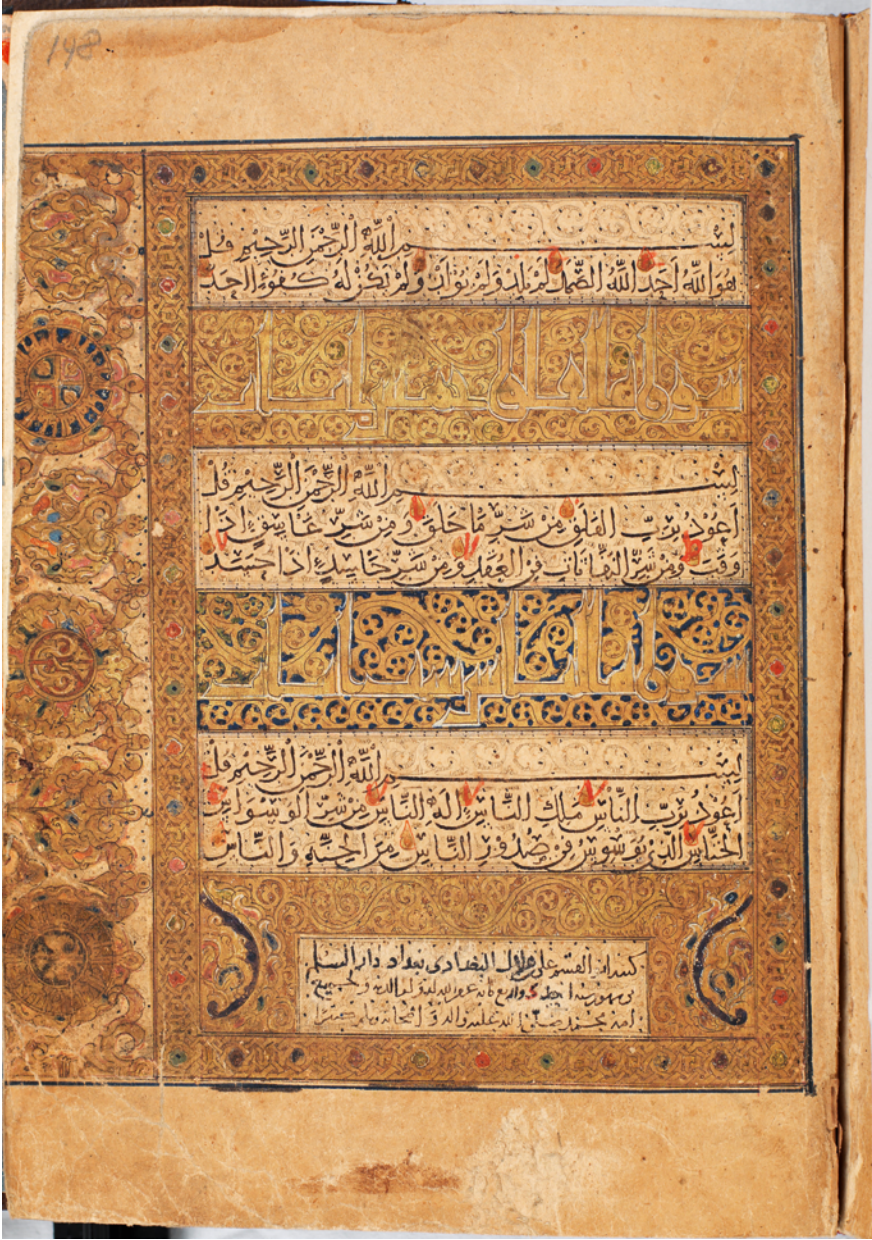 148
بسم الله الرحمن الرحيم قل
هو الله احد الله الصمد لم يلد ولم يولد ولم يكن له كفوءا احد
سورة الفلق خمس ايات
بسم الله الرحمن الرحيم قل
اعوذ برب الفلق من شر ما خلق ومن شر غاسق اذا
وقب ومن شر النفاثات في العقد ومن شر حاسد اذا حسد
سورة الناس ست ايات
بسم الله الرحمن الرحيم قل
اعوذ برب الناس ملك الناس اله الناس من شر الوسواس
الخناس الذي يوسوس في صدور الناس من الجنة والناس
كتبه ابو القسم علي بن هلال البغدادى ببغداد دار السلم
احدى واربع مائة غفر الله له ولوالديه ولجميع
امة محمد صلى الله عليه